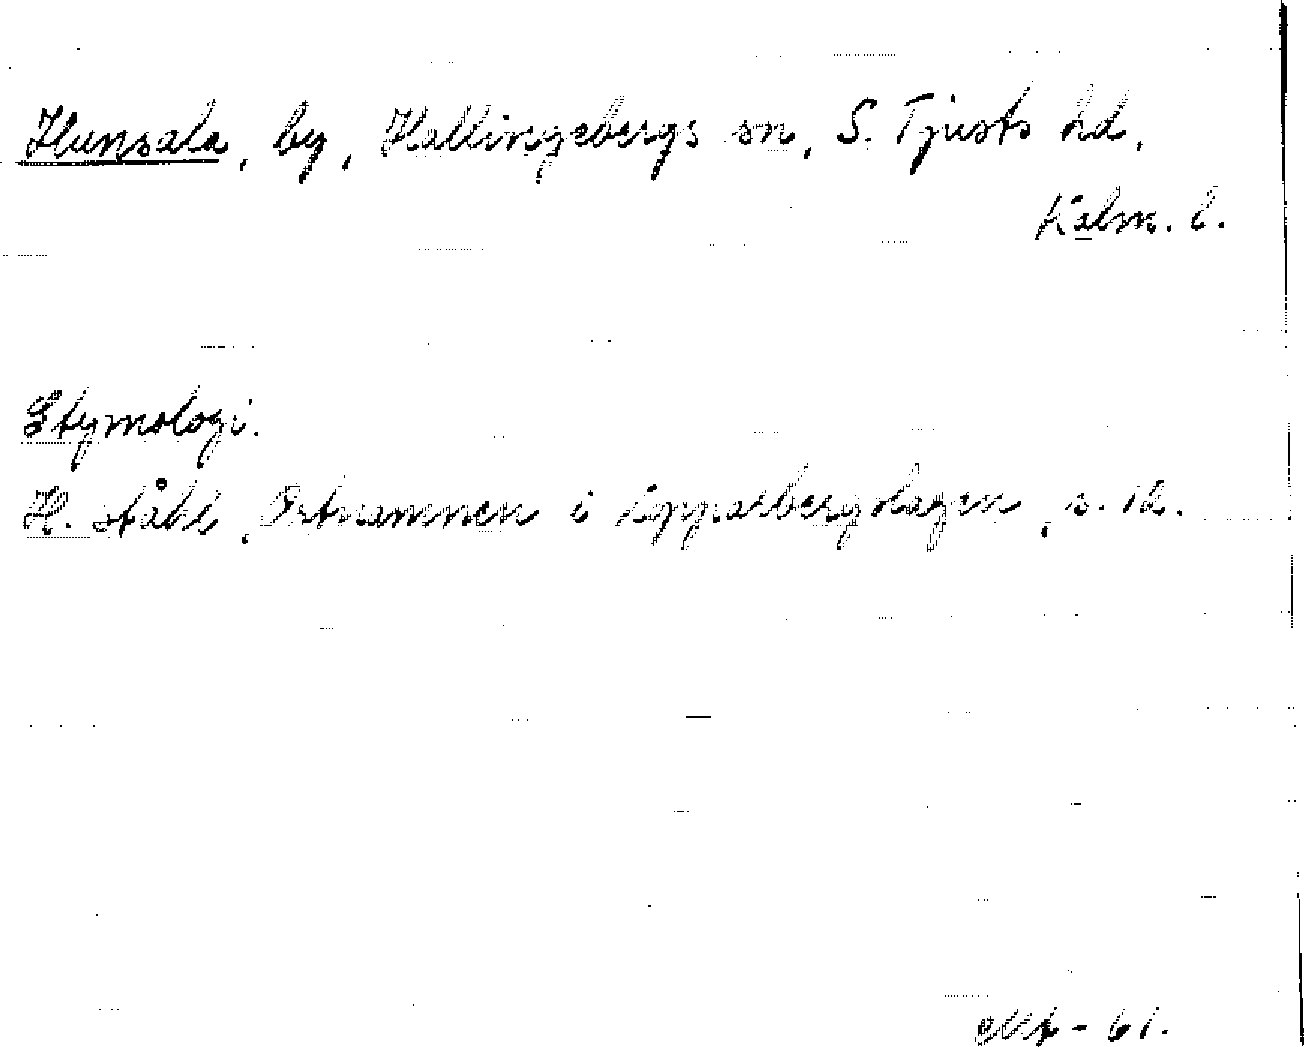 Hunsala, by, Hallingebergs sn, S. Tjusts hd,
Kalm. l.
Etymologi.
H. Ståhl, Ortnamnen i Kopparbergslagen, s. 12.
- 61.